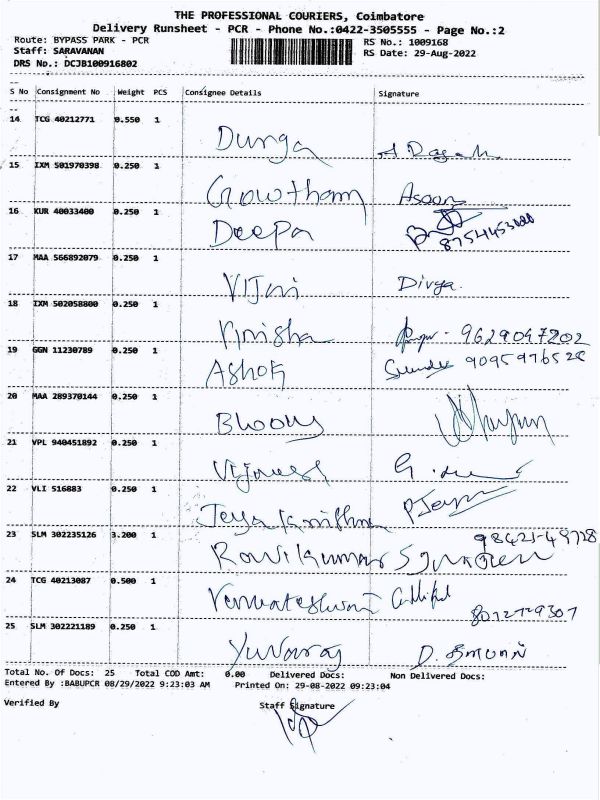 THE PROFESSIONAL COURIERS, Coimbatore
Delivery Runsheet - PCR - Phone No.:0422-3505555 - Page No.:2
Route: BYPASS PARK - PCR
RS No.: 1009168
Staff: SARAVANAN
RS Date: 29-Aug-2022
DRS No.: DCJB100916802
S No Consignment No Weight PCS Consignee Details Signature
14 TCG 40212771 0.550 1
Durga
15 IXM 501970398 0.250 1
Gowtham
16 KUR 40033400 0.250 1
Deepa
8754453000
17 MAA 566892079 0.250 1
Vijai Divya
18 IXM 502058800 0.250 1
9629047202
19 GGN 11230789 0.250 1
Ashok 9095976528
20 MAA 289370144 0.250 1
21 VPL 940451892 0.250 1
22 VLI 516883 0.250 1
23 SLM 302235126 3.200 1
98421-49728
24 TCG 40213087 0.500 1
8072729307
25 SLM 302221189 0.250 1
Yuvaraj
Total No. Of Docs: 25 Total COD Amt: 0.00 Delivered Docs: Non Delivered Docs:
Entered By :BABUPCR 08/29/2022 9:23:03 AM Printed On: 29-08-2022 09:23:04
Verified By Staff Signature